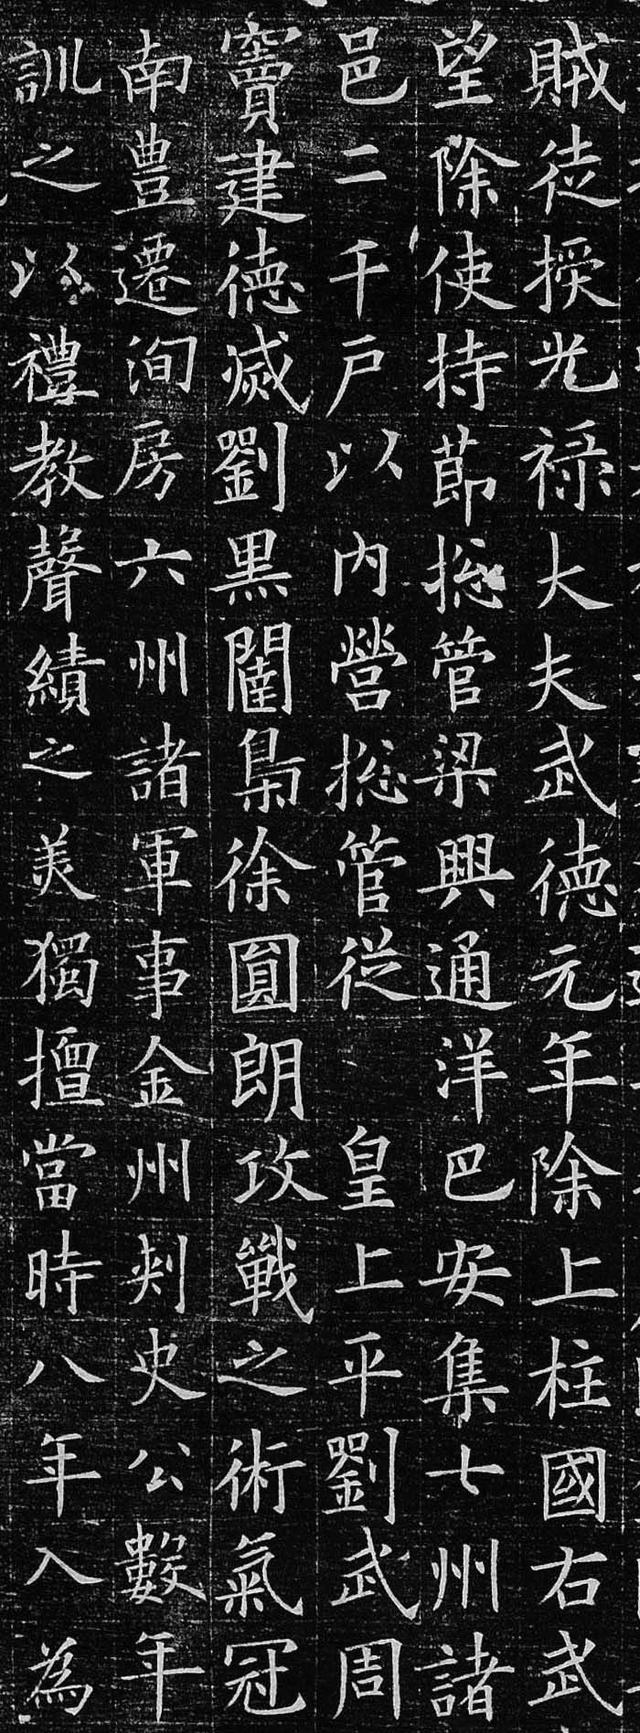 賊徒授光祿大夫武德元年除上柱國右武
望除使持節捴管梁興通洋巴安集七州諸
邑二千戶以內營捴管從皇上平劉武周
竇建德滅劉黑闥梟徐圓朗攻戰之術氣冠
南豊遷洵房六州諸軍事金州刾史公數年
訓之以禮教聲績之美獨擅當時八年入為